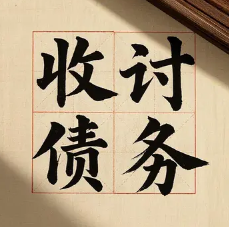 收讨
债务